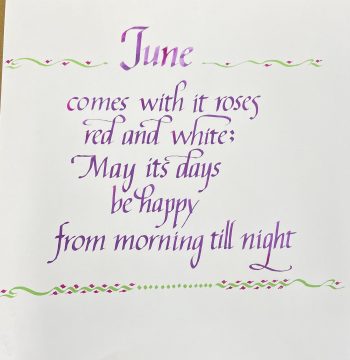 June
comes with it roses
red and white;
May its days
be happy
from morning till night